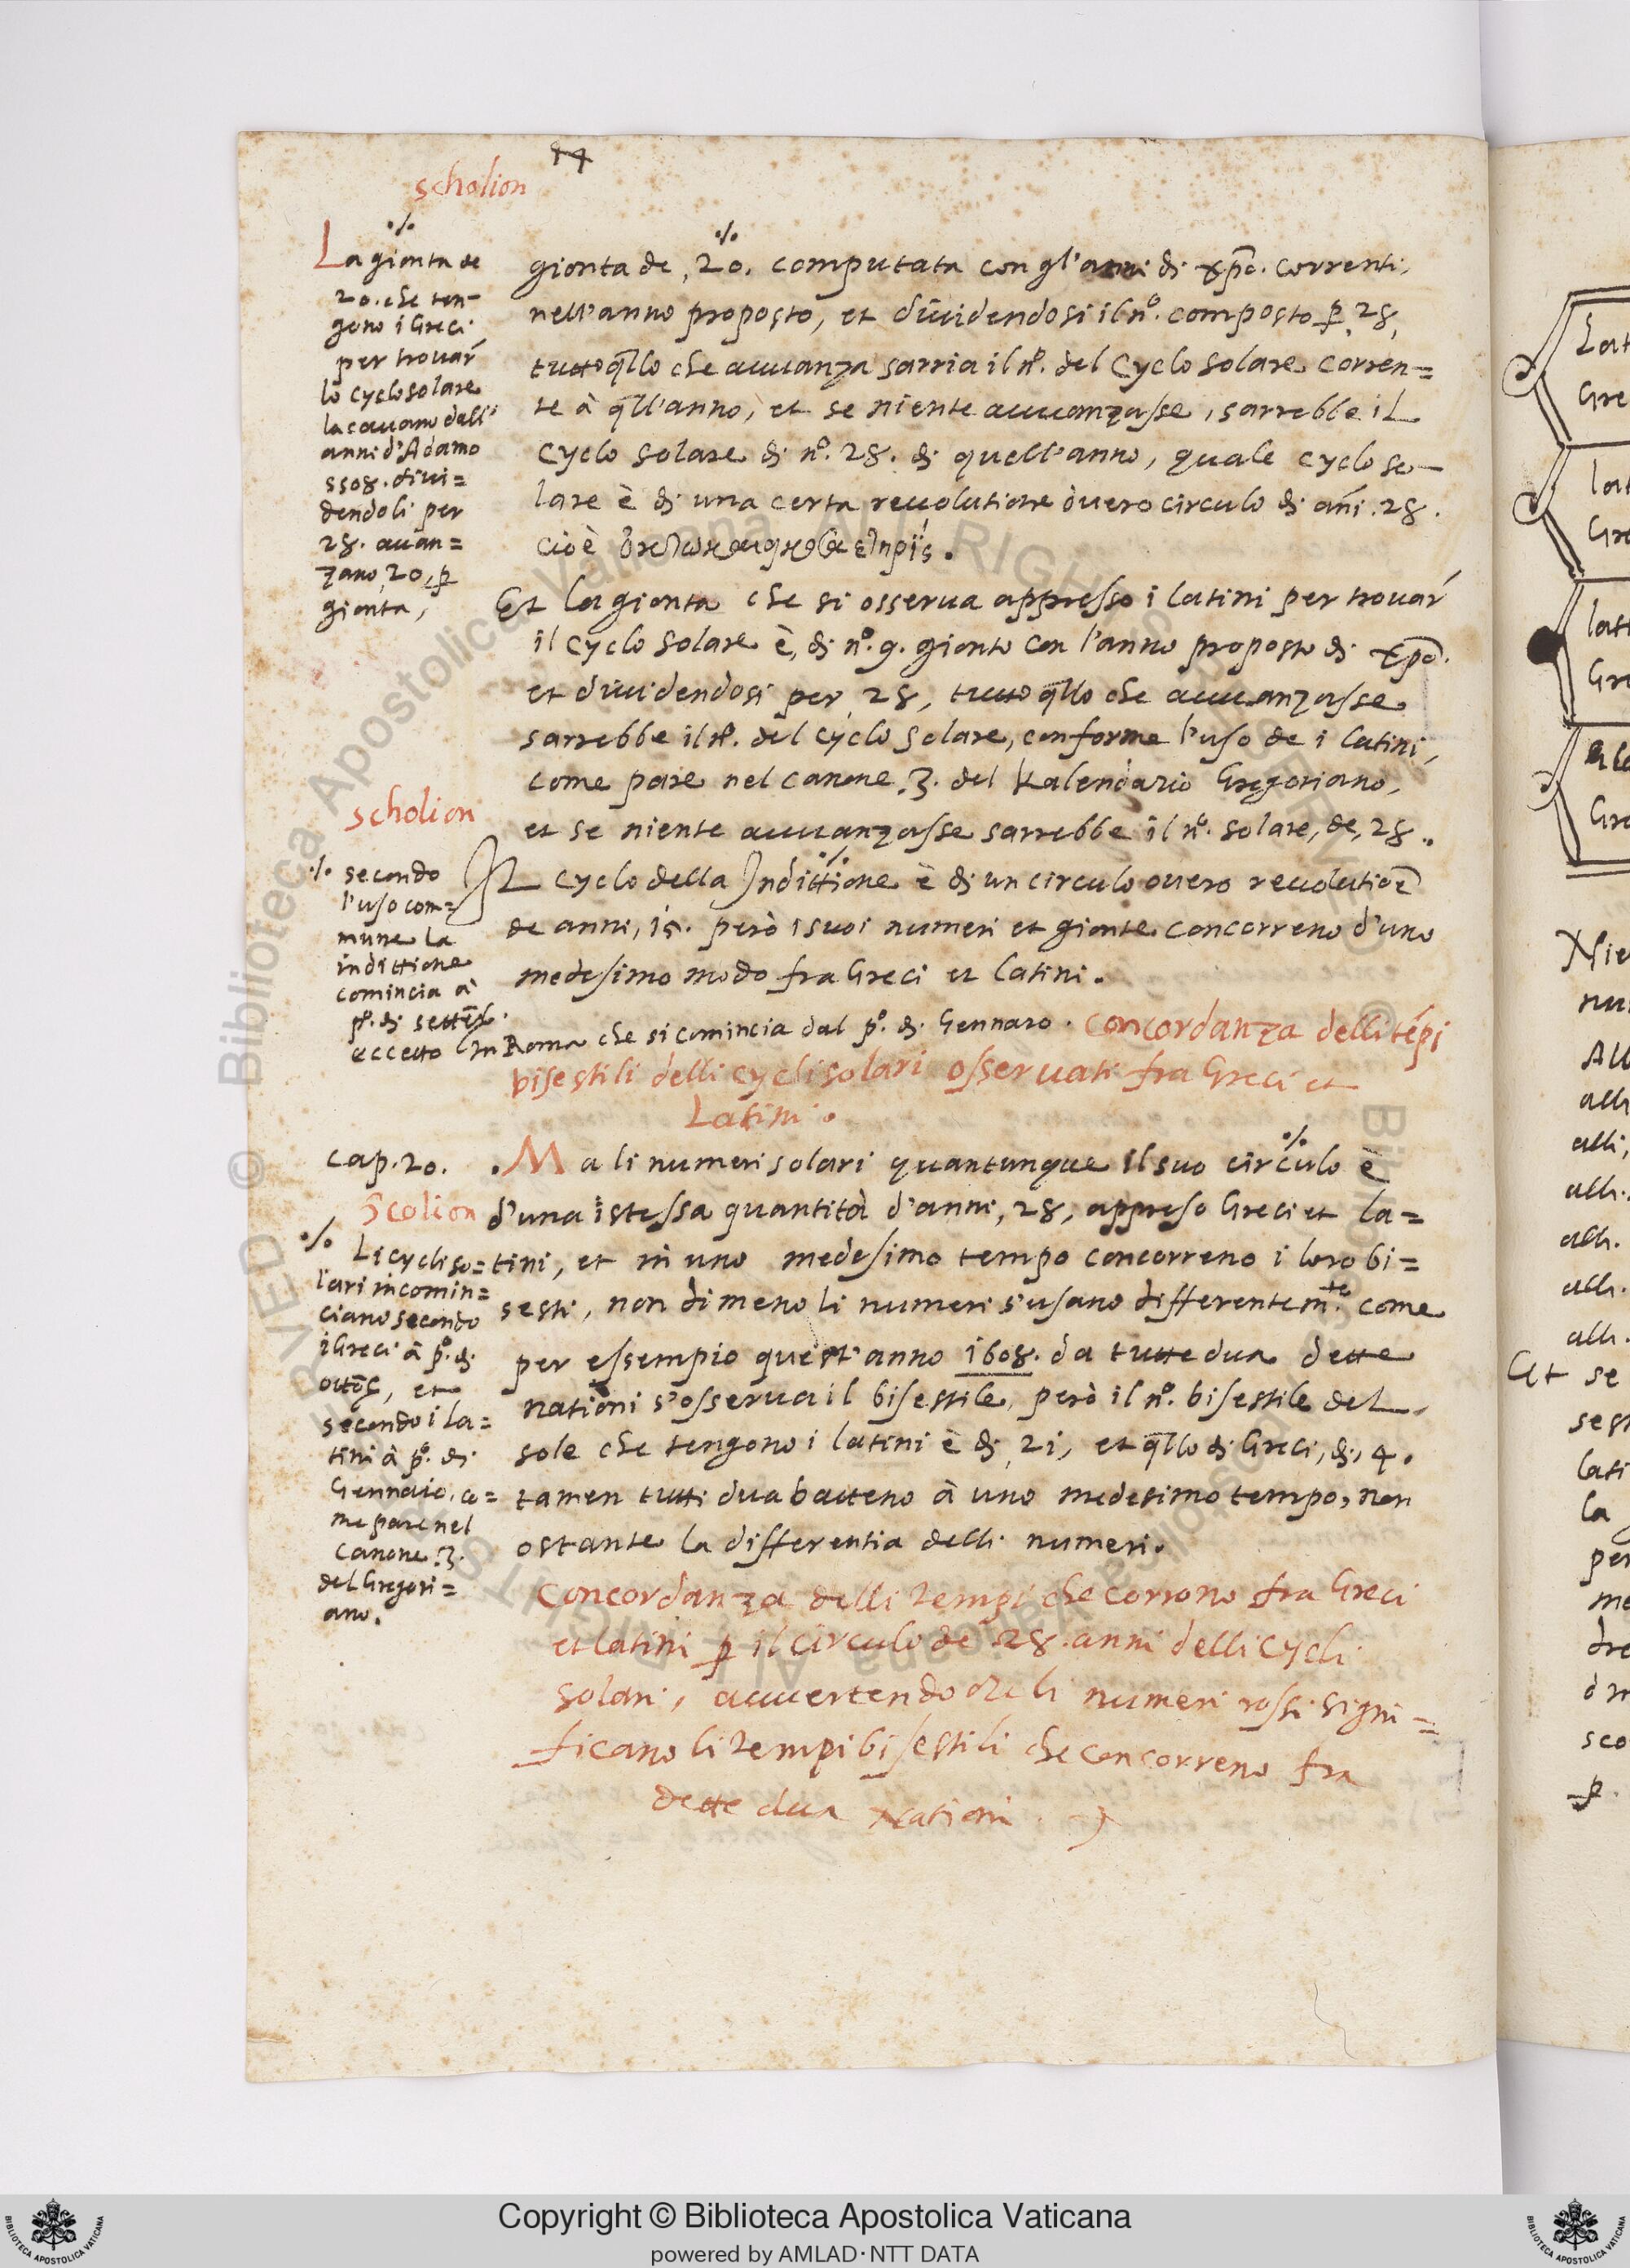 14
scholion
·/·
La gionta de
20. che ten-
gono i Greci
per trouar̃
lo cyclo solare
la cauano dall'
anni d'Adamo
5508. diui=
dendoli per
28. auan=
zano, 20, p̱
gionta,
·/·
gionta de, 20. computata con gl'anni di xp̃o. correnti,
nell'anno proposto, et diuidendosi il nº. composto p̱, 28,
tutto q̃llo che auuanza sarria il nº. del Cyclo solare corren=
te à q̃ll'anno, et se niente auuanzasse, sarrebbe il
Cyclo solare di nº. 28. di quell'anno, quale cyclo so-
lare è di una certa reuolutione òuero circulo di añi. 28.
cioè
Et la gionta che si osserua appresso i latini per trouar̃
il cyclo solare è, di nº. 9. gionto con l'anno proposto di xp̃o.
et diuidendosi per, 28, tutto q̃llo che auuanzasse
sarrebbe il nº. del cyclo solare, conforme l'uso de i latini,
come pare nel canone .3. del Kalendario Gregoriano,
et se niente auuanzasse sarrebbe il nº. solare, de, 28.
scholion
·/· secondo
l'uso com=
mune la
indittione
comincia à
pº. di settẽb.
eccetto in Roma che si comincia dal pº. di Gennaro.
·/·
IL cyclo della Indittione è di un circulo ouero reuolutiõe
de anni, 15. però i suoi numeri et gionte concorreno d'uno
medesimo modo fra Greci et latini.
Concordanza delli tẽpi
bisestili delli cycli solari osseruati fra Greci et
Latini.
cap. 20.
·/·
Ma li numeri solari quantunque il suo circulo è
d'una istessa quantità d'anni, 28, appreso Greci et la=
tini, et in uno medesimo tempo concorreno i loro bi=
sesti, non di meno li numeri s'usano differentem.te come
per essempio quest'anno 1608. da tutte dua dette
nationi s'osserua il bisestile, però il nº. bisestile del
sole che tengono i latini è di, 21, et q̃llo di Greci, di, 4.
tamen tutti dua batteno à uno medesimo tempo, non
ostante la differentia delli numeri.
Scolion
·/· Li cycli so=
lari incomin=
ciano secondo
i Greci à pº. di
ottob̃, et
secondo i la=
tini à pº. di
Gennaio. co=
me pare nel
canone .3.
del Gregori=
ano.
Concordanza delli tempi che corrono fra Greci
et latini p̱ il circulo de .28. anni delli cycli
solari, auuertendo che li numeri rossi signi=
ficano li tempi bisestili che concorreno fra
dette dua Nationi.
Lat
Gre
lat
Gre
latt
Gre
Gre
Nie
nu
All
alli,
alli.
alli.
alli.
alli.
Et se
sest
lati
la
per
me
dre
sco
p̱.
Copyright © Biblioteca Apostolica Vaticana
powered by AMLAD·NTT DATA
BIBLIOTECA APOSTOLICA VATICANA
BIBLIOTECA APOSTOLICA VATICANA